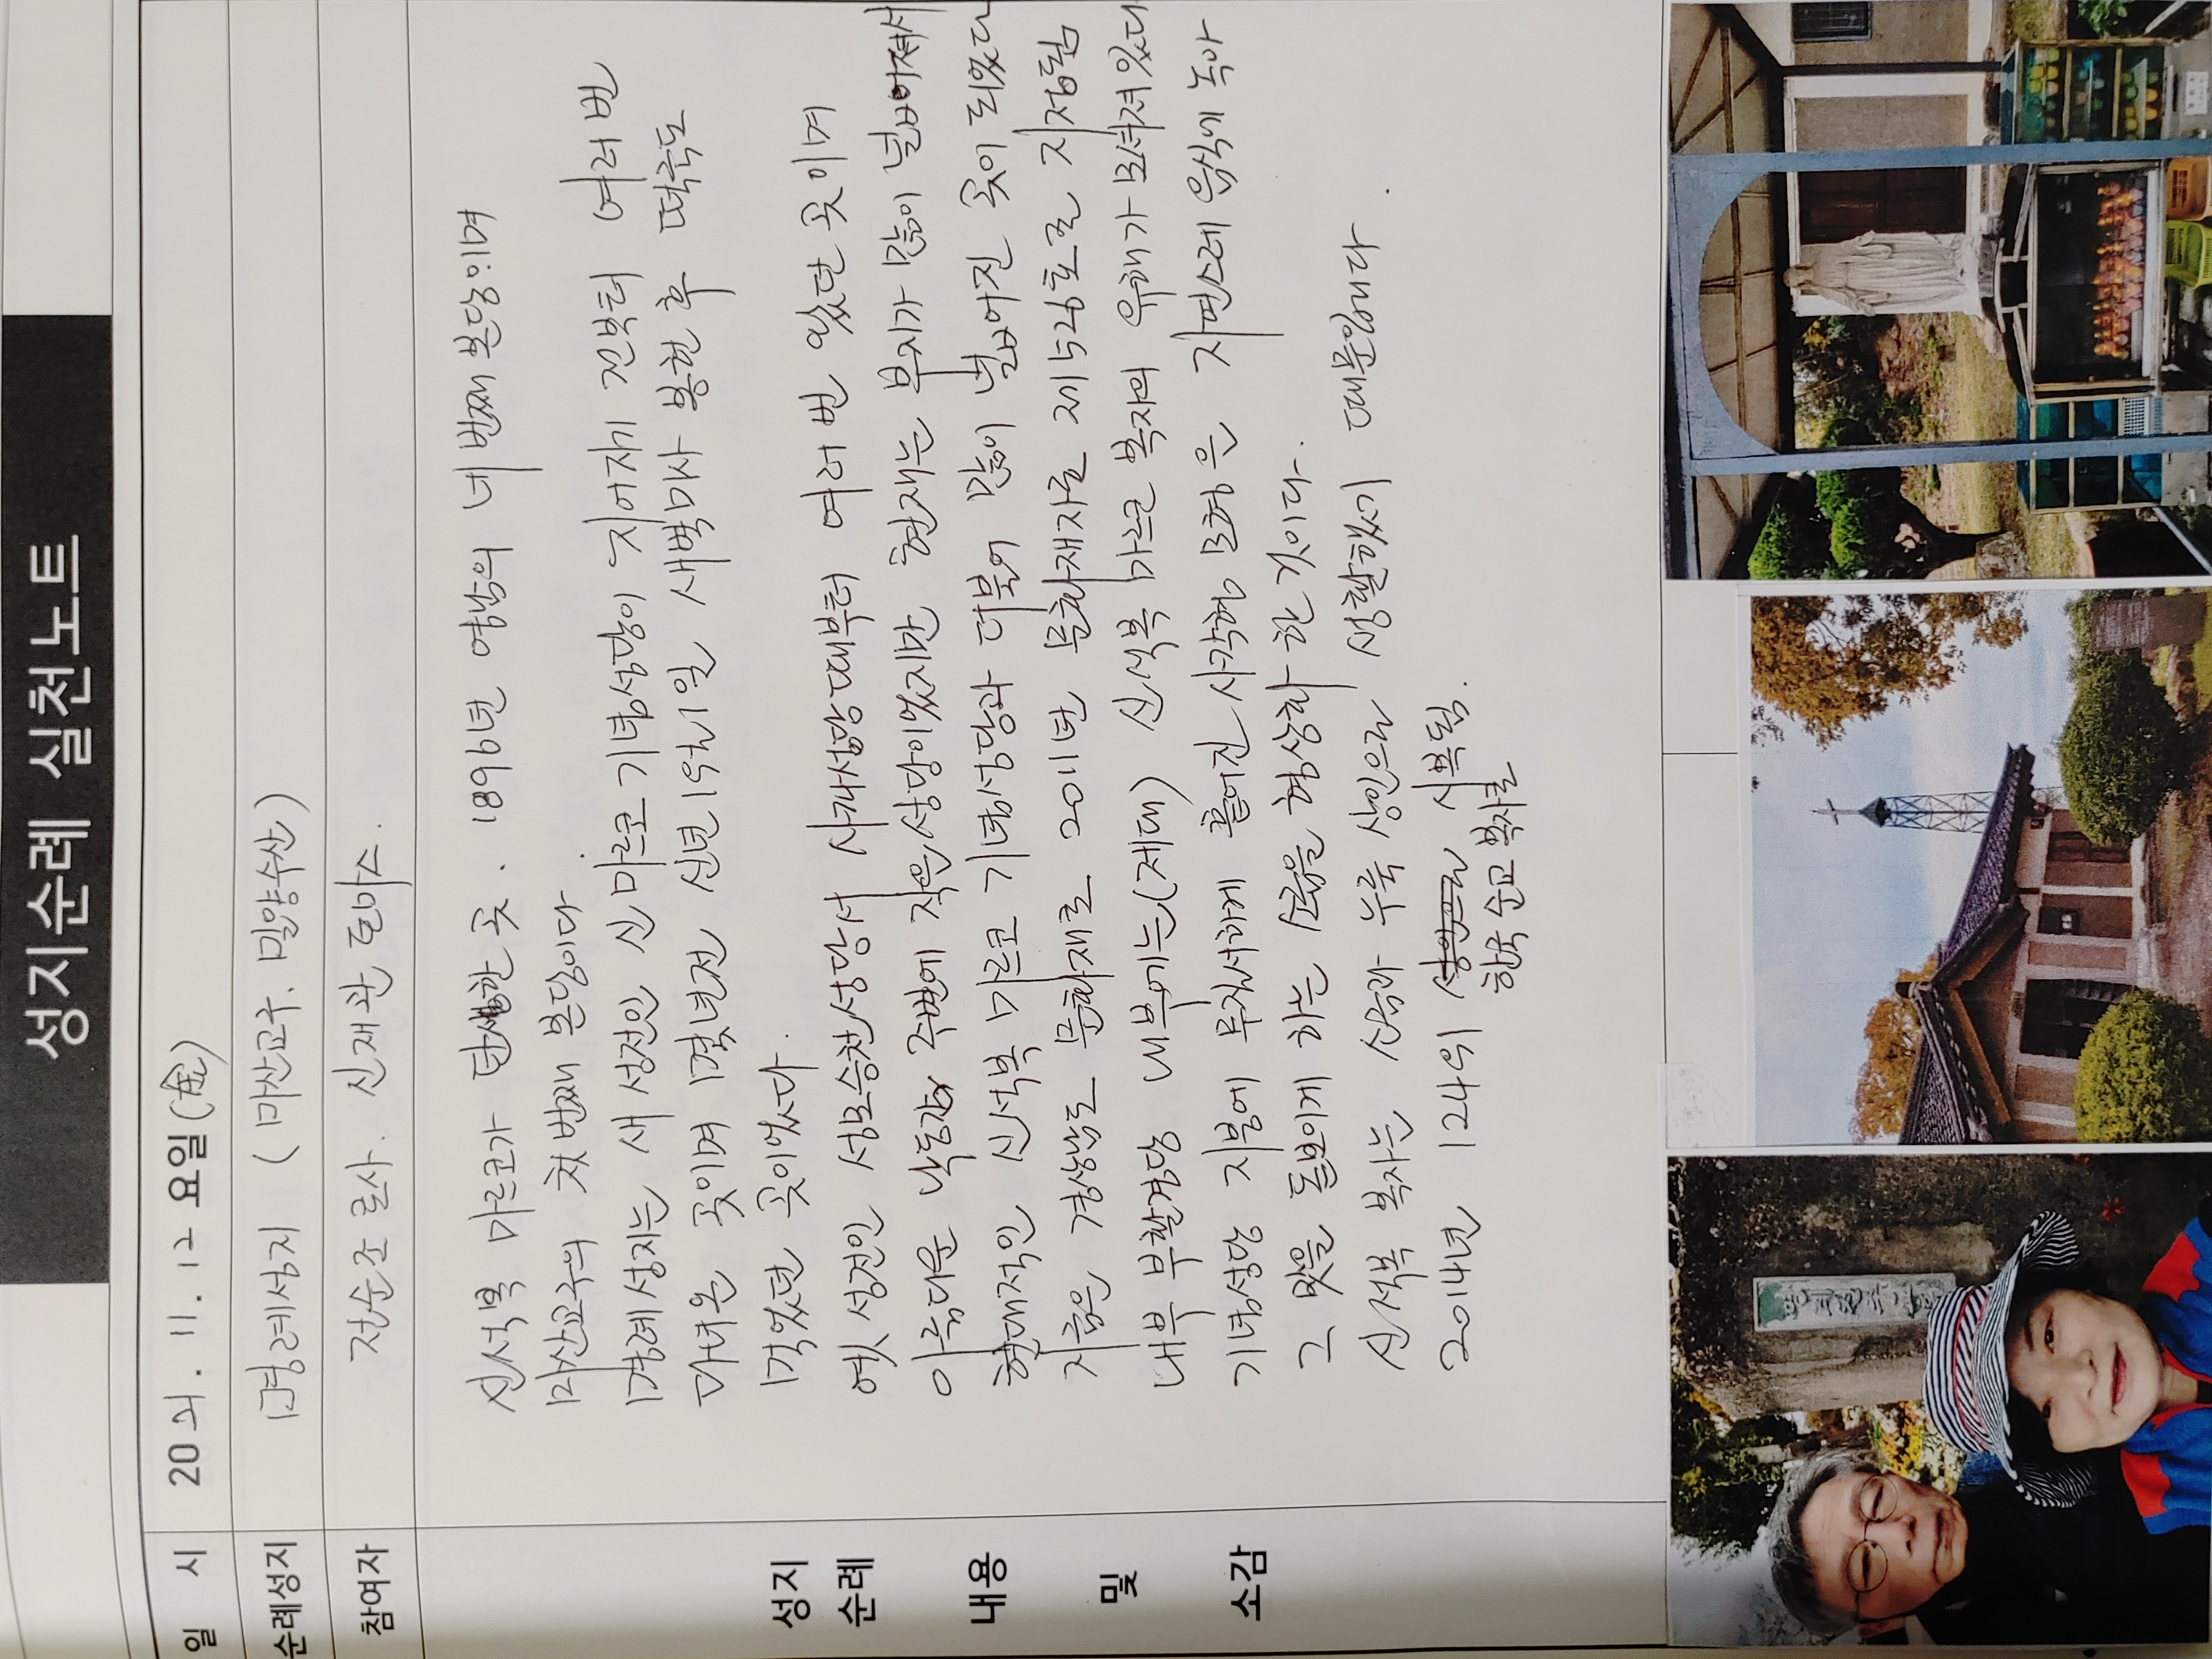 성지순례 실천노트
일 시 2021. 11. 12 요일(金)
순례성지 명례성지 (마산교구. 밀양수산)
참여자 전순조 로사. 신재관 토마스.
성지
순례
내용
및
소감
신석복 마르코가 탄생한 곳. 1896년 영남의 네 번째 본당이며
마산교구의 첫 번째 본당이다.
명례성지는 새 성전인 신 마르코 기념성당이 지어지기 전부터 여러 번
다녀온 곳이며 몇년전 신년 1월 1일 새벽미사 봉헌 후 떡국도
먹었던 곳이었다.
옛 성전인 성모승천성당서 사개성당때부터 여러 번 왔던 곳이며
아름다운 낙동강 주변에 작은 성당이었지만 현재는 부지가 많이 넓어져서
현대적인 신석복 마르코 기념성당과 더불어 많이 넓어진 곳이 되었다
지금은 경상남도 문화재로 2011년 문화재자료 제526호로 지정됨
내부 부활경당 내부에는(제대) 신석복 마르코 복자의 유해가 모셔져있다
기념성당 지붕에 무질서하게 흩어진 사각형 모형은 자연스레 음식에 녹아
그 맛을 돋보이게 하는 소금을 형상화 한 것이다.
신석복 복자는 소금과 누룩 상인으로 생활했기 때문입니다.
2014년 124위 시복됨.
한국 순교 복자로